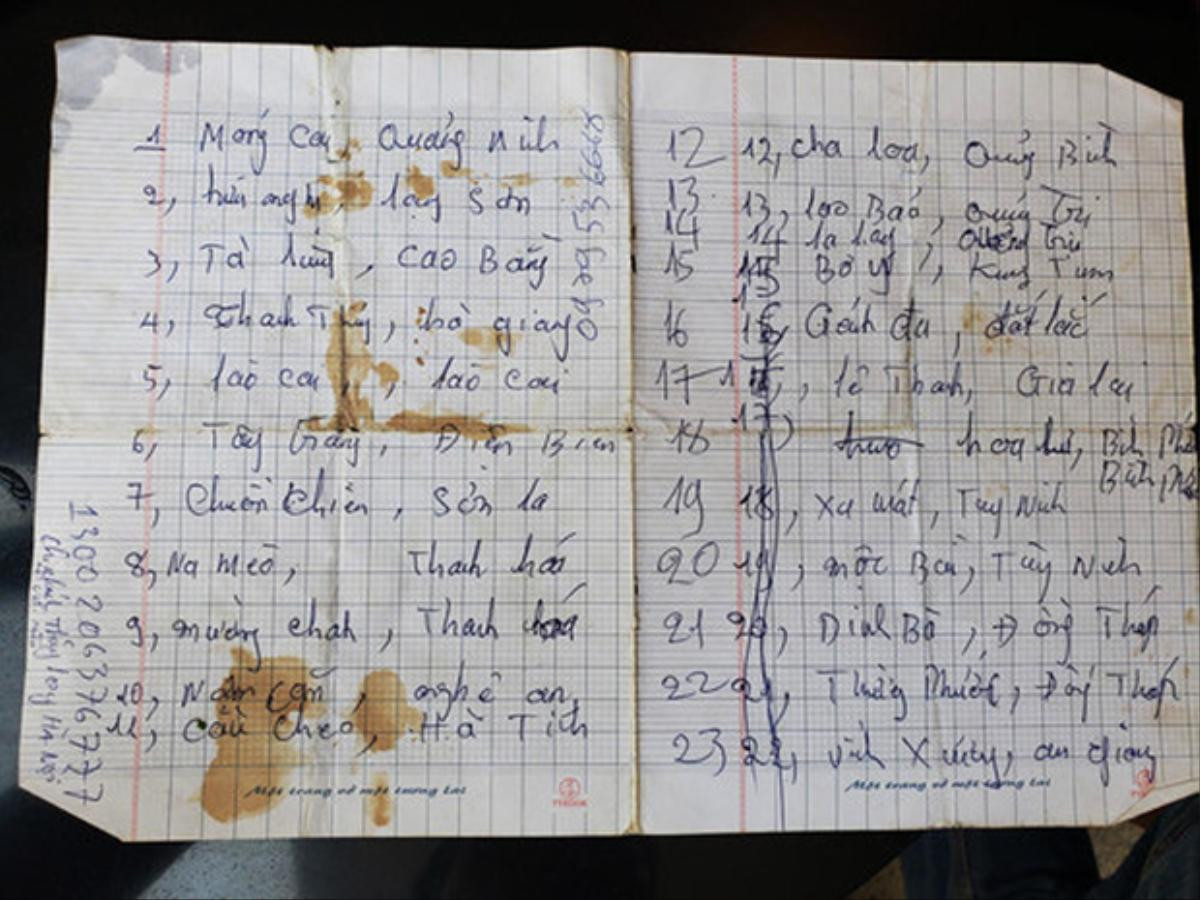 1 Móng Cai, Quảng Ninh
2, hữu nghị, lạng Sơn
3, Tà lùng, Cao Bằng
4, Thanh Thủy, hà giang
5, lào cai, lào cai
6, Tây Trang, Điện Biên
7, Chiềng Khiên, Sơn la
8, Na mèo, Thanh hoá
9, mường chah, Thanh hoá
10, Nậm Cắn, nghệ an,
11, Cầu Cheo, Hà Tĩnh
Một trang vở một tương lai
0979536668
1300206376777
chi nhánh Thăng long Hà Nội
12 12, cha loa, Quảng Bình
13 13, lao Bảo, Quảng Trị
14 14 la lay, Quảng Trị
15 Bờ y, Kung Tum
16 đắk lắc
17 lê Thanh, Gia lai
18 17 hoa lư, Bình Phước
Bình Phước
19 18, Xa mát, Tây Ninh
20 19, mộc Bài, Tây Ninh
21 20, Dinh Bà, Đồng Tháp
22 21, Thường Phước, Đồng Tháp
23 22, vĩnh Xương, an giang
Một trang vở một tương lai